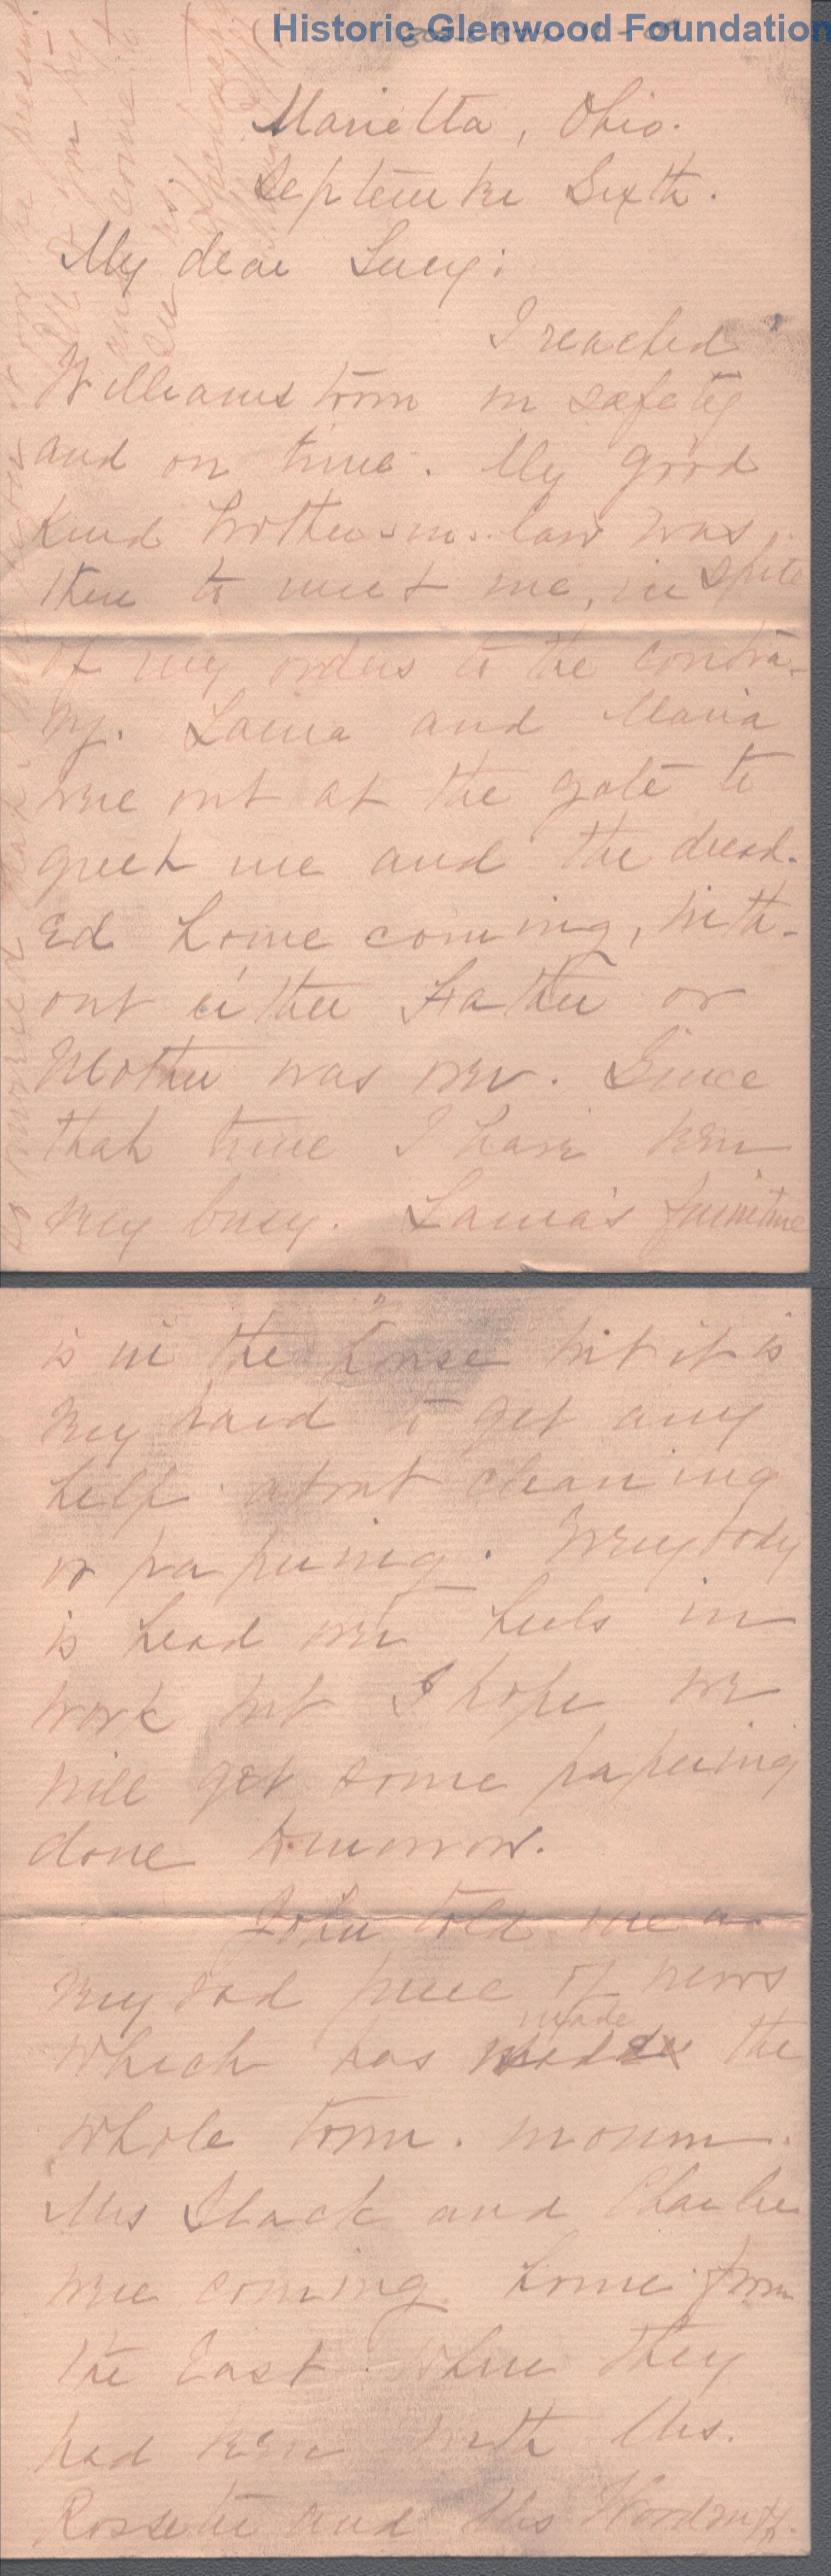 Historic Glenwood Foundation
Marietta, Ohio.
September Sixth.
My dear Lucy:
I reached
Williamstown in safety
and on time. My good
kind brother-in-law was
there to meet me, in spite
of my orders to the contra-
ry. Laura and Maria
were out at the gate to
greet me and the dread-
ed home coming, with-
out either Father or
Mother was over. Since
that time I have been
very busy. Laura's furniture
is in the house but it is
very hard to get any
help about cleaning
or papering. Everybody
is head over heels in
work but I hope we
will get some papering
done tomorrow.
John told me a
very sad piece of news
made
which has the
whole town mourn.
Mrs Slack and Charlie
were coming home from
the East where they
had been with Mrs.
and Mrs